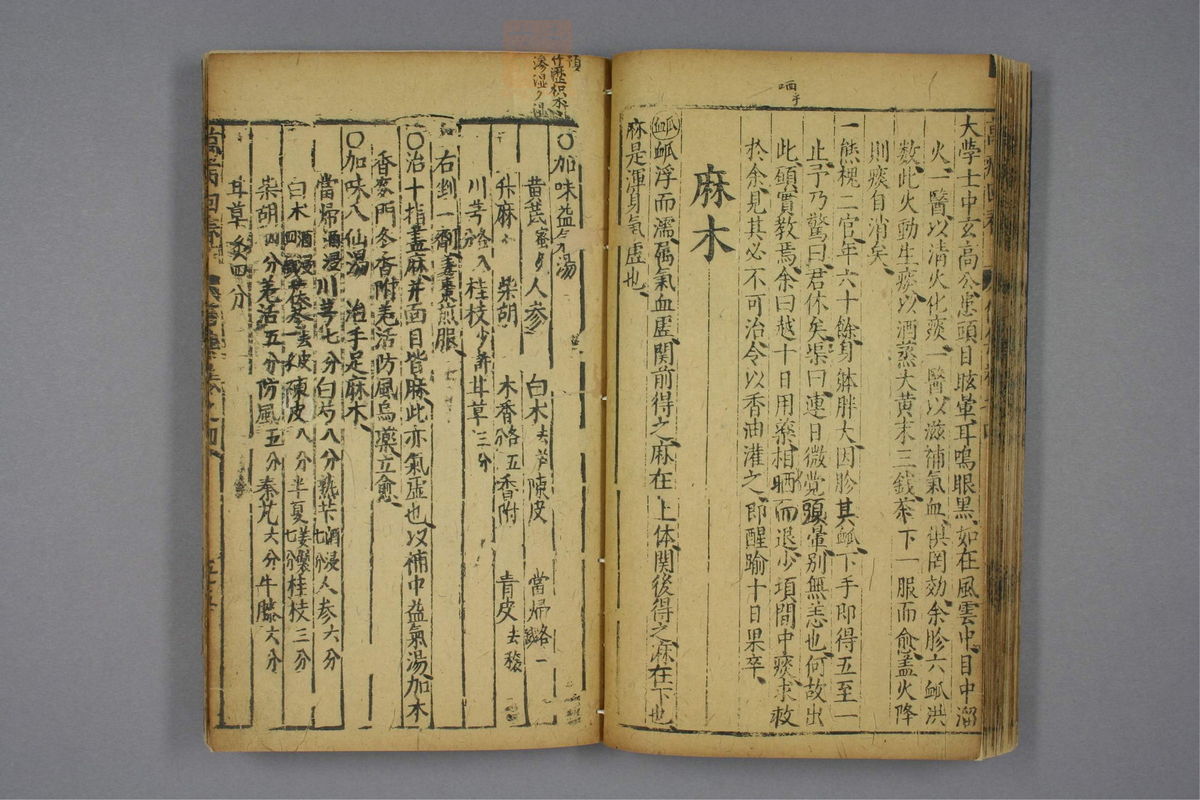 大學士中玄高公患頭目眩暈耳鳴眼黑如在風雲中目中溜
火一醫以清火化痰一醫以滋補氣血俱罔効余胗六脉洪
數此火動生痰以酒蒸大黃末三錢茶下一服而愈盖火降
則痰自消矣
一熊槐二官年六十餘身躰胖大因胗其脉下手即得五至一
止予乃驚曰君休矣渠曰連日微覺頭暈别無恙也何故出
此碩實教焉余曰越十日用藥相晒而退少項間中痰求救
於余見其必不可治令以香油灌之即醒踰十日果卒
麻木
脉浮而濡属氣血虛関前得之麻在上体関後得之麻在下也
麻是渾身氣虛也
〇加味益氣湯
黄芪蜜 人参 白木去芦 陳皮 當歸各一
升麻 柴胡 木香各五分 香附 青皮去穰
川芎各 桂枝少許 甘草三分
右剉一劑薑棗煎服
〇治十指盡麻并面目皆麻此亦氣虛也以補中益氣湯加木
香麥門冬香附羌活防風烏藥立愈
〇加味八仙湯 治手足麻木
當歸酒浸 川芎七分 白芍八分 熟芐酒浸七分 人参六分
白木酒浸 茯苓去皮 陳皮八分 半夏姜製七分 桂枝三分
柴胡四分 羌活五分 防風五分 秦艽六分 牛膝六分
甘草炙四分